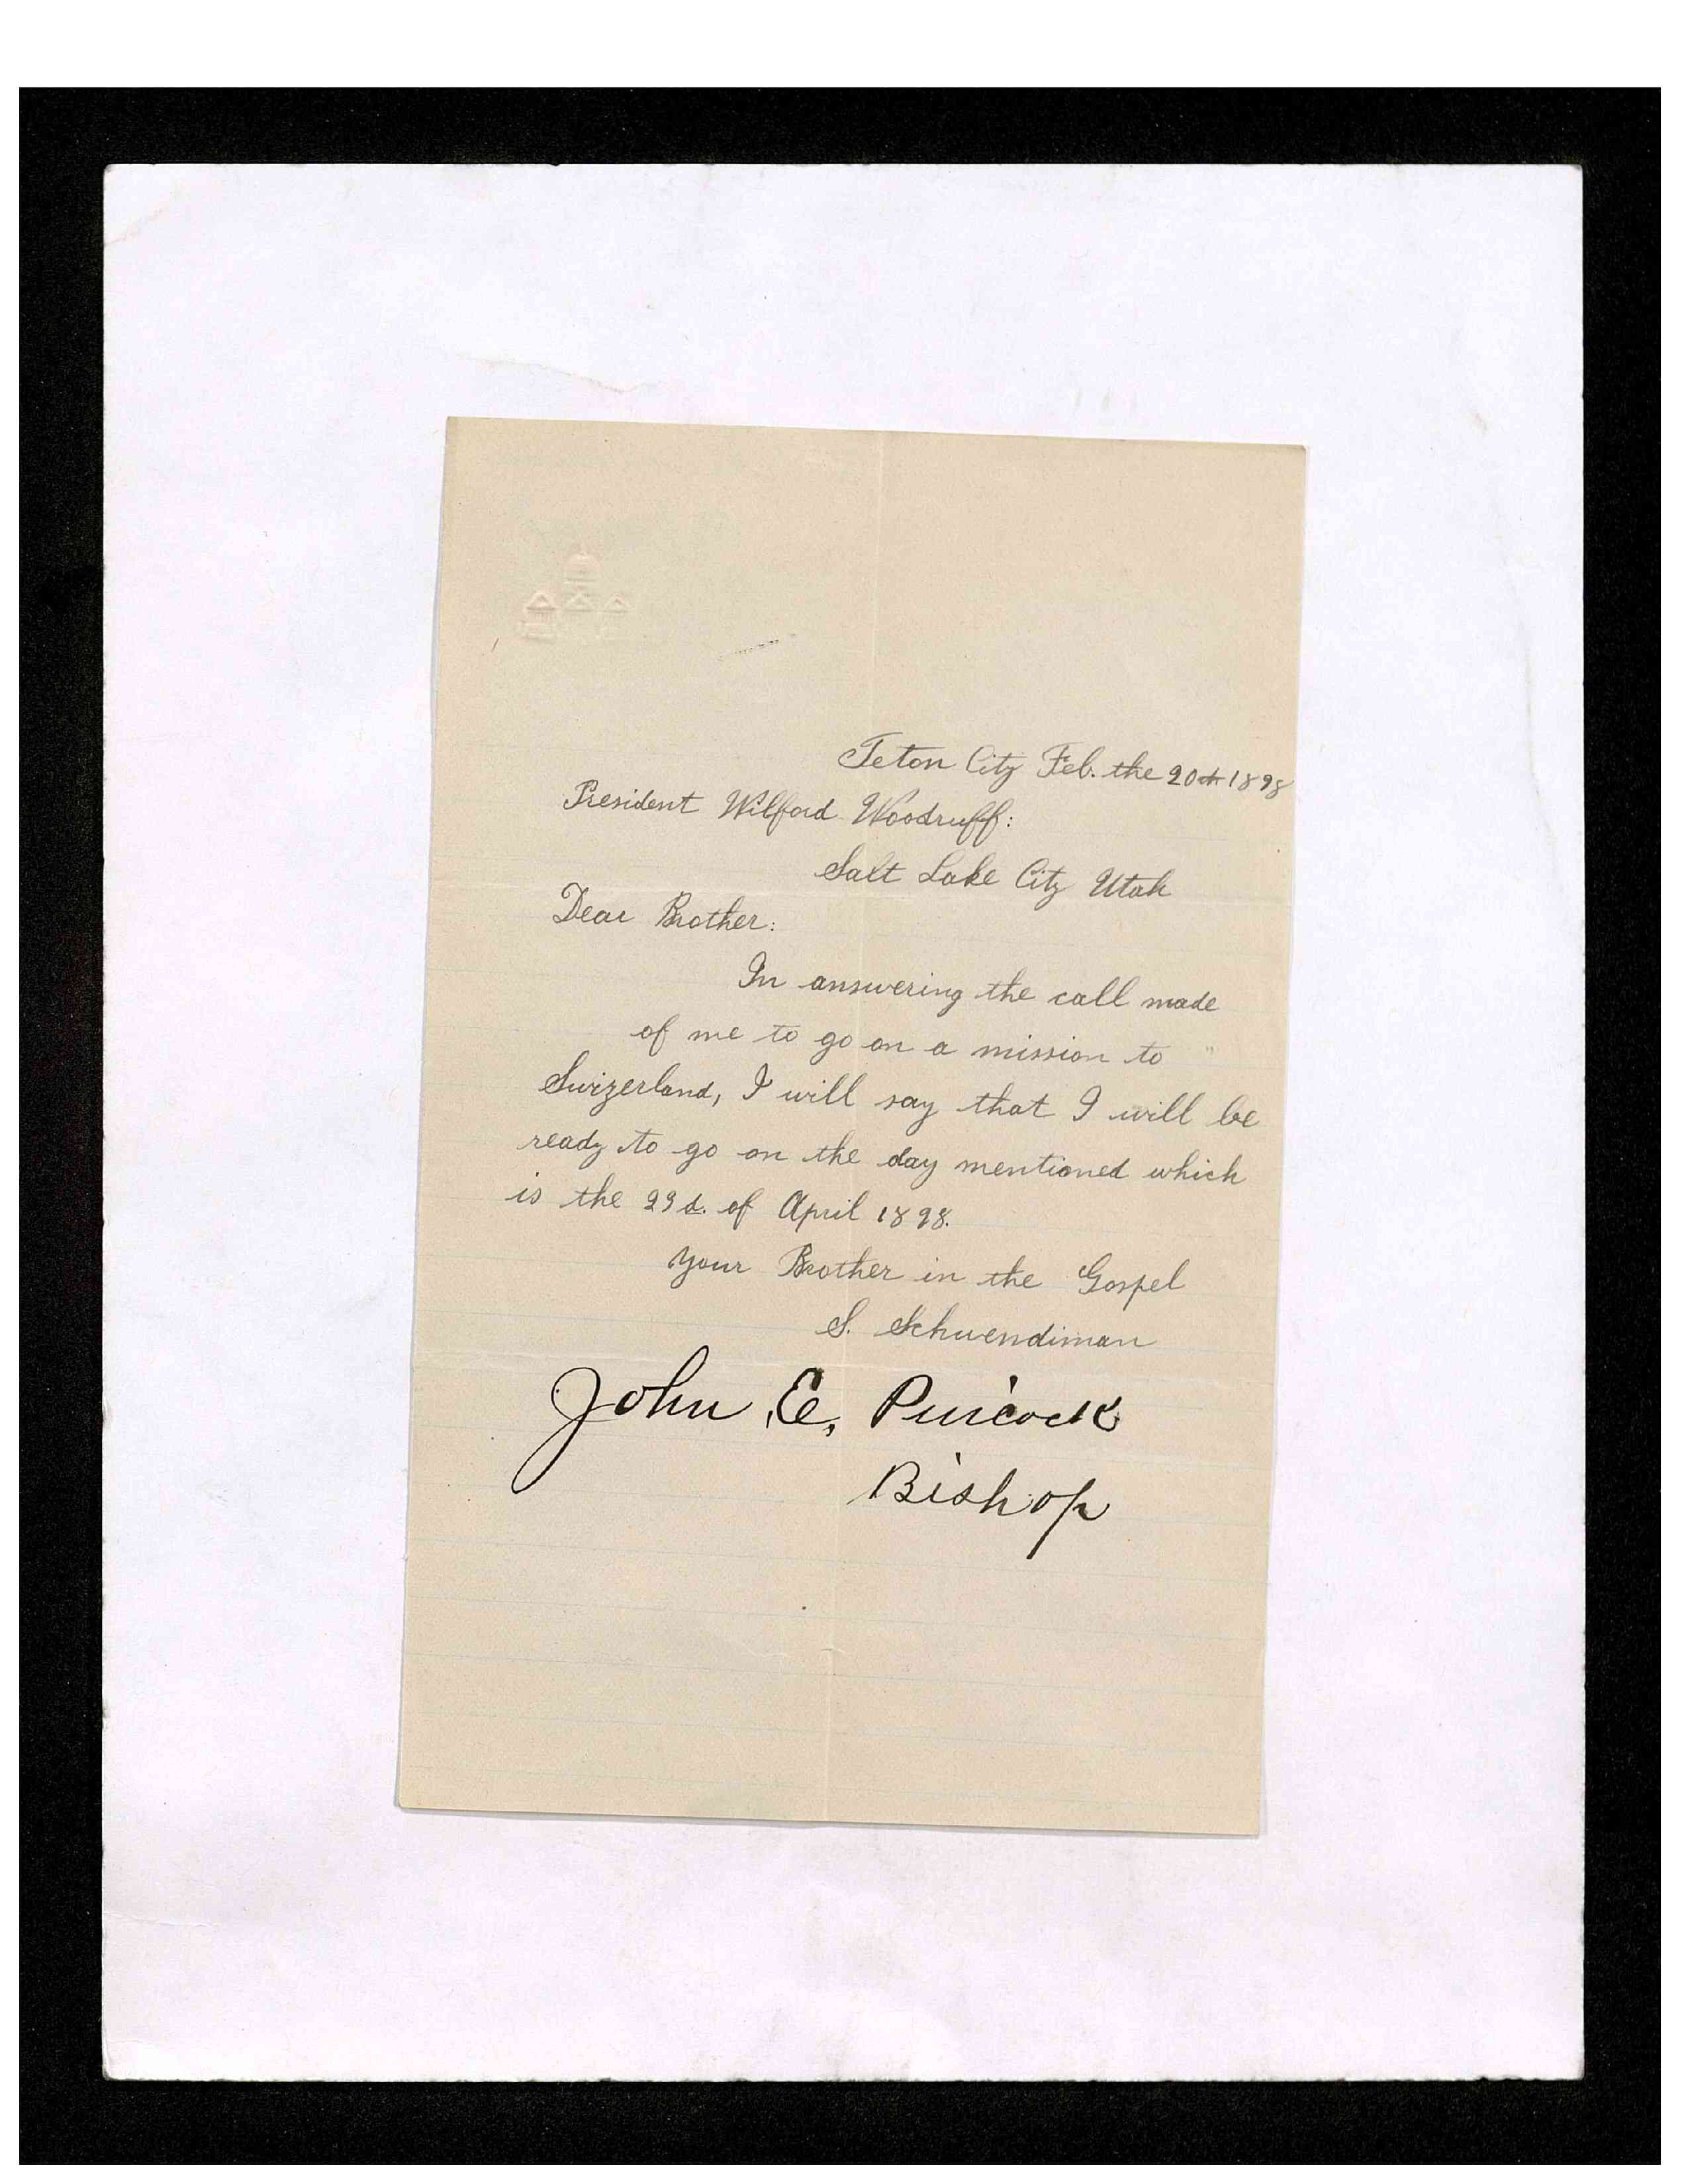 Teton City Feb. the 20th 1898
President Wilford Woodruff:
Salt Lake City Utah
Dear Brother:
In answering the call made
of me to go on a mission to
Swizerland, I will say that I will be
ready to go on the day mentioned which
is the 23d. of April 1898.
Your Brother in the Gospel
S. Schwendiman
John E. Pincock
Bishop